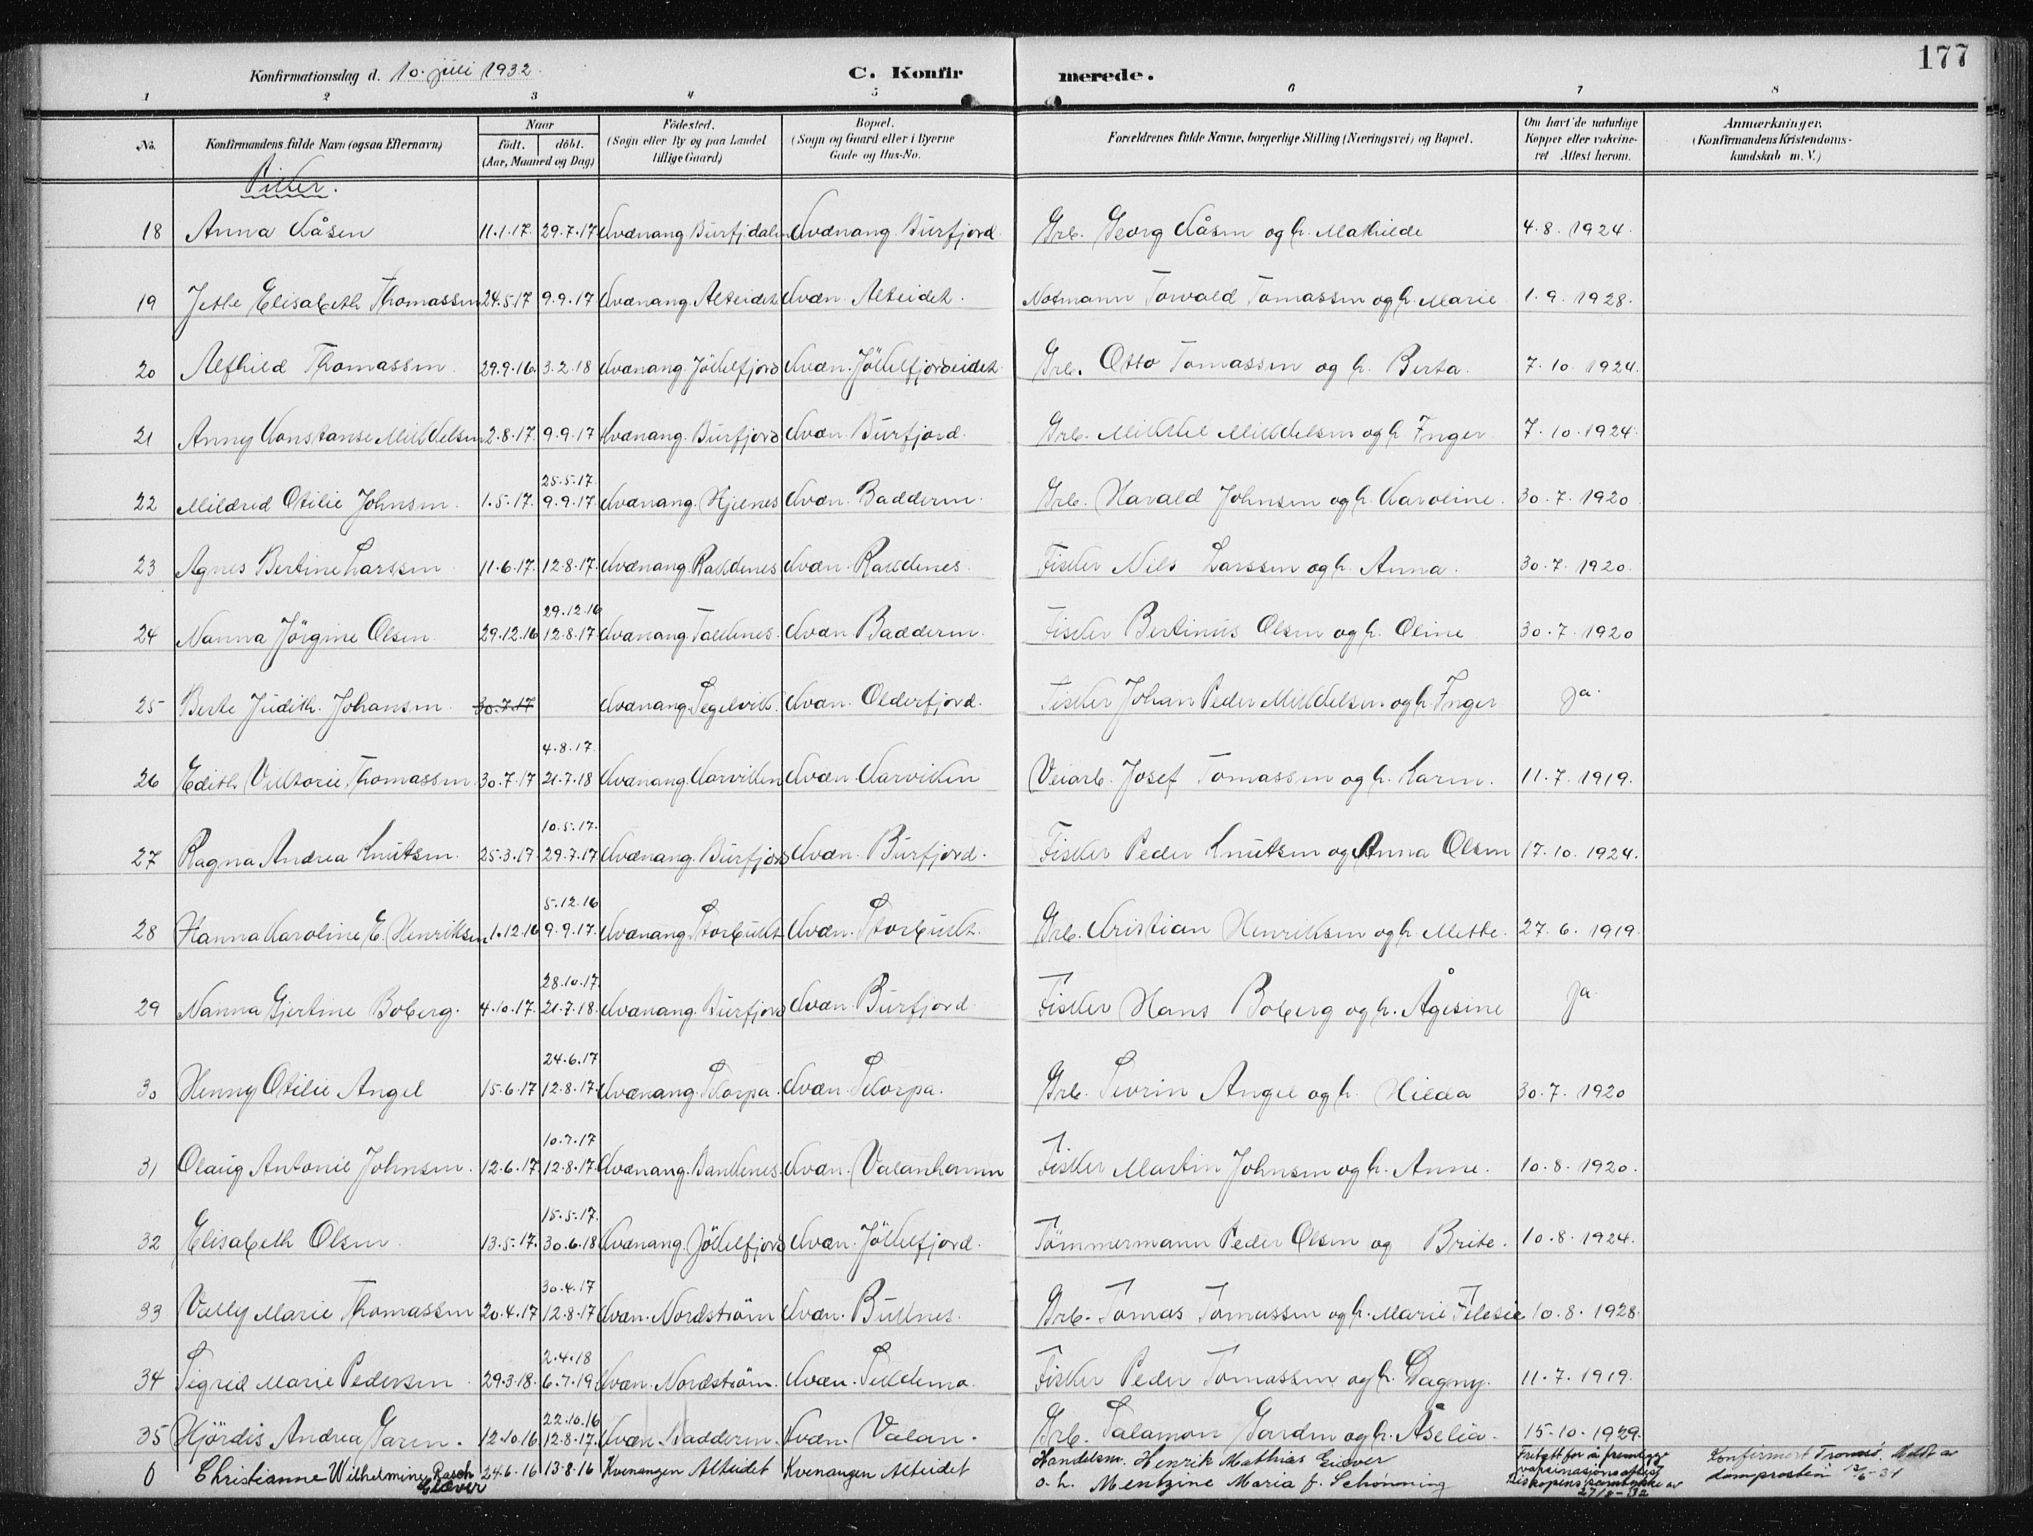 177
Konfirmationsdag d. 10. juli 1932. C. Konfirmerede.
1 2 3 4 5 6 7 8
No. Konfirmandens fulde Navn (ogsaa Efternavn) Naar født. døbt. (Aar, Maaned og Dag) Fødested. (Sogn eller By og paa Landet tillige Gaard) Bopæl. (Sogn og Gaard eller i Byerne Gade og Hus-No. Forældrenes fulde Navne, borgerlige Stilling (Næringsvei) og Bopæl. Om havt de naturlige Kopper eller vakcineret Attest herom. Anmærkninger. (Konfirmandens Kristendomskundskab m. V.)
Piker.
18 Anna Kåsen 11.1.17. 29.7.17 Kvænang Burfjdalen Kvænang Burfjord. Grb. Georg Kåsen og h. Mathilde 4.8.1924.
19 Jethe Elisabeth Thomassen 24.5.17 9.9.17 Kvænang Alteidet Kvæn. Alteidet. Notmann Torvald Tomassen og h. Marie 1.9.1928.
20 Alfhild Thomassen. 29.9.16. 3.2.18 Kvænang. Jökelfjord Kvæn. Jökelfjordeidet. Grb. Otto Tomassen og h. Berta. 7.10.1924.
21 Anny Konstanse Mikkelsen 2.8.17. 9.9.17 Kvænang. Burfjord Kvæn. Burfjord. Grb. Mikkel Mikkelsen og h. Inger 7.10.1924.
25.5.17.
22 Mildred Otilie Johnsen. 1.5.17. 9.9.17 Kvænang. Hjelnes Kvæn. Badderen. Grb. Harald Johnsen og h. Karoline. 30.7.1920.
23 Agnes Bertine Larssen. 11.6.17. 12.8.17. Kvænang. Rakkenes Kvæn. Rakkenes. Fisker Nils Larssen og h. Anna. 30.7.1920.
29.12.16
24 Nanna Jörgine Olsen. 29.12.16 12.8.17. Kvænang. Takkenes. Kvæn. Badderen. Fisker Bertinus Olsen og h. Oline 30.7.1920
25 Berte Judith. Johansen. 30.7.17 Kvænang. Segelvik. Kvæn. Olderfjord. Fisker Johan Peder Mikkelsen og h. Inger Ja.
4.8.17.
26 Edith Viktorie Thomassen. 30.7.17 21.7.18 Kvænang. Karvikken Kvæn. Karvikken Veiarb. Josef Tomassen og h. Karen. 11.7.1919.
10.5.17.
27 Ragna Andrea Knutsen. 25.3.17 29.7.17 Kvænang. Burfjord Kvæn. Burfjord. Fisker Peder Knutsen og Anna Olsen 17.10.1924.
5.12.16
28 Hanna Karoline E. Henriksen 1.12.16 9.9.17. Kvænang. Storbukt Kvæn. Storbukt. Grb. Kristian Henriksen og h. Mette. 27.6.1919.
28.10.17.
29 Nanna Gjertine Boberg. 4.10.17. 21.7.18. Kvænang. Burfjord Kvæn. Burfjord. Fisker Hans Boberg og h. Ågesine Ja
24.6.17
30 Henny Otilie Angel 15.6.17 12.8.17 Kvænang. Skorpa. Kvæn. Skorpa. Grb. Sevrin Angel og h. Hilda 30.7.1920
10.7.17
31 Olaug Antonie Johnsen. 12.6.17. 12.8.17. Kvænang. Bankenes Kvæn. Valanhamn Fisker Martin Johnsen og h. Anne. 10.8.1920.
15.5.17.
32 Elisabeth Olsen. 13.5.17. 30.6.18 Kvænang. Jökelfjord Kvæn. Jökelfjord. Tömmermann Peder Olsen og Brite. 10.8.1924.
30.4.17
33 Vally Marie Thomassen 20.4.17 12.8.17 Kvæn. Nordström Kvæn. Buknes. Grb. Tomas Tomassen og h. Marie 10.8.1928
2.4.18
34 Sigrid Marie Pedersen. 29.3.18. 6.7.19. Kvæn. Nordström. Kvæn. Fisker Peder Tomassen og h. Dagny. 11.7.1919.
22.10.16
35 Hjördis Andrea 12.10.16 12.8.17. Kvæn. Badderen. Kvæn. Valan. Grb. Salamon og h. Åselia. 15.10.1929.
0 Christianne Wilhelmine Rasch Giæver 24.6.16 13.8.16 Kvenangen Alteidet Kvenangen Alteidet Handelsm. Henrik Mathias Giæver Fritatt for å fremlegge vaksinasjonsattest Konfirmert Tromsö. Meldt av
o. h. Mentzine Maria f. Schönning 27/8-32 domprosten